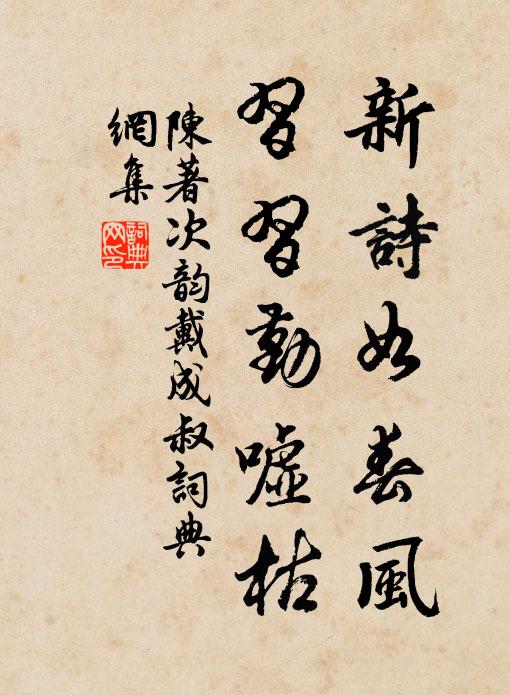 新詩如春風
習習勤噓枯
陳著次韵戴成叔詞典
網集
詞典网印